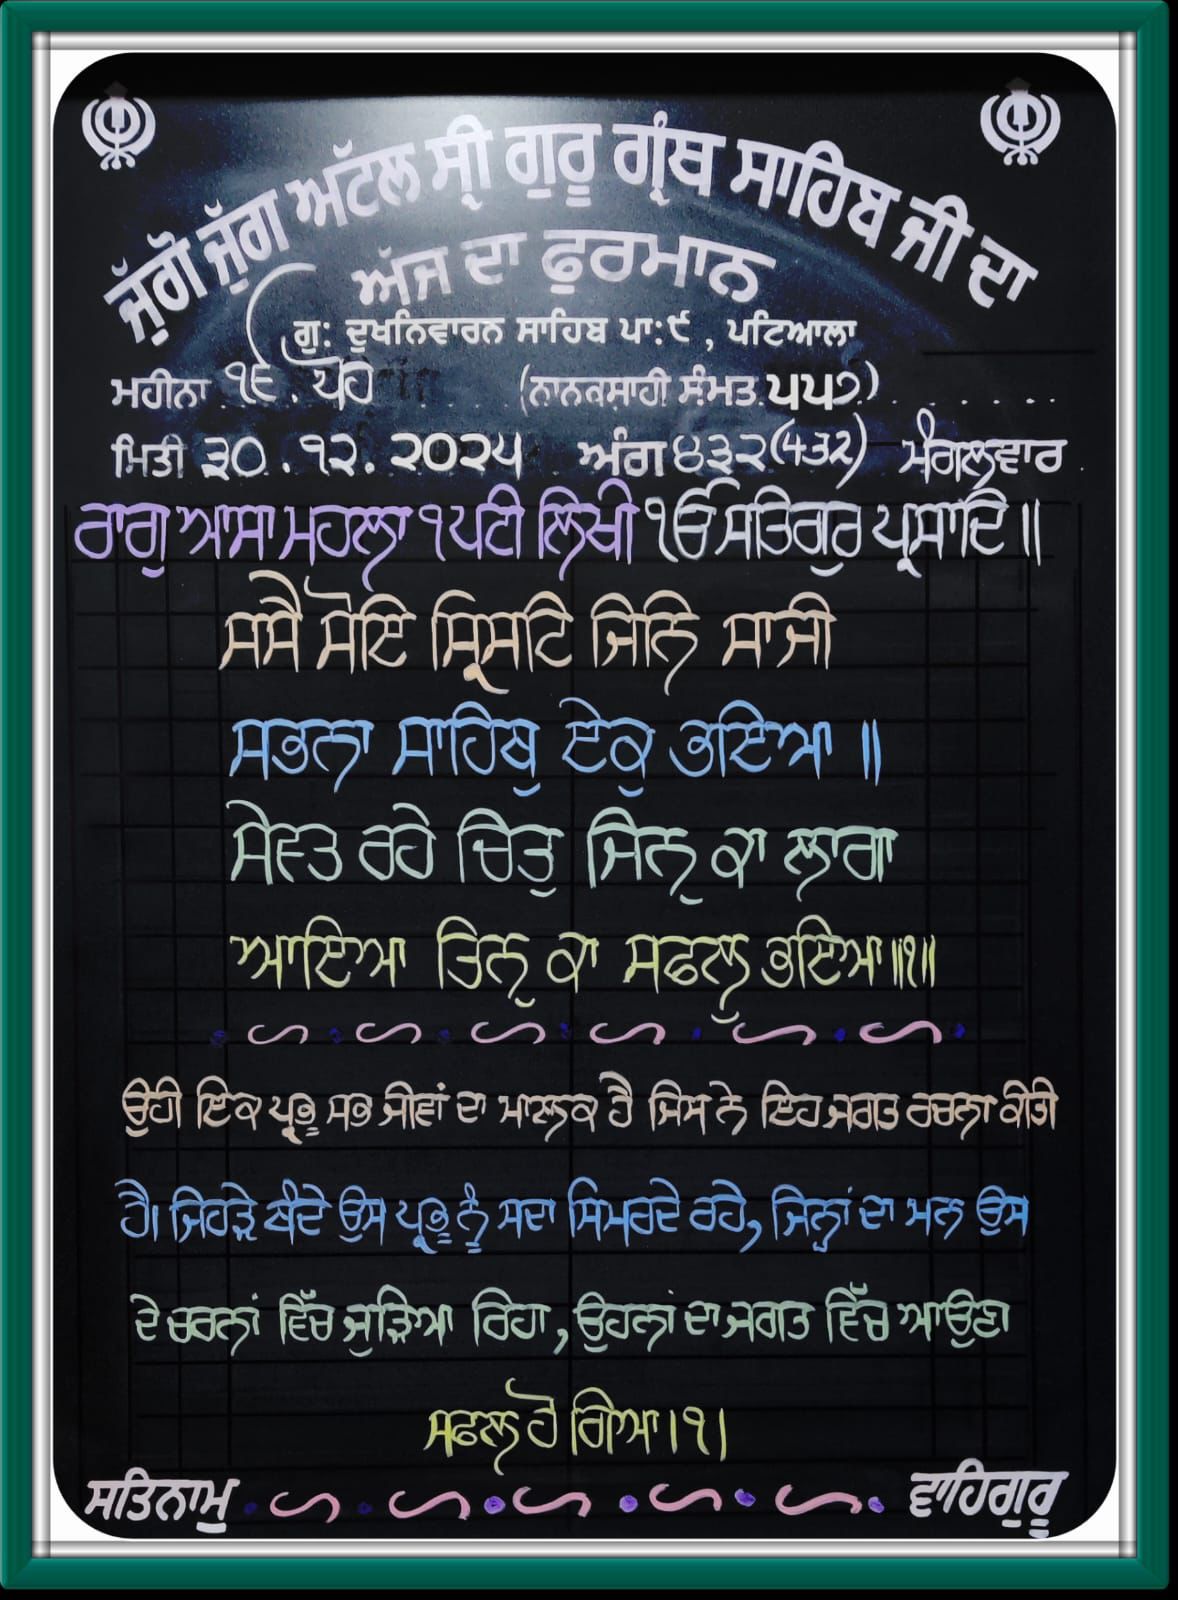 ਜੁੱਗੋ ਜੁੱਗ ਅਟੱਲ ਸ੍ਰੀ ਗੁਰੂ ਗ੍ਰੰਥ ਸਾਹਿਬ ਜੀ ਦਾ
ਅੱਜ ਦਾ ਫੁਰਮਾਨ
ਗੁ: ਦੁਖਨਿਵਾਰਨ ਸਾਹਿਬ ਪਾ:੯, ਪਟਿਆਲਾ
ਮਹੀਨਾ ੧੬ ਪੋਹ (ਨਾਨਕਸ਼ਾਹੀ ਸੰਮਤ ੫੫੭)
ਮਿਤੀ ੩੦.੧੨.੨੦੨੫ ਅੰਗ ੪੩੨(432) ਮੰਗਲਵਾਰ
ਰਾਗੁ ਆਸਾ ਮਹਲਾ ੧ ਪਟੀ ਲਿਖੀ ੴ ਸਤਿਗੁਰ ਪ੍ਰਸਾਦਿ॥
ਸਸੈ ਸੋਇ ਸ੍ਰਿਸਟਿ ਜਿਨਿ ਸਾਜੀ
ਸਭਨਾ ਸਾਹਿਬੁ ਏਕੁ ਭਇਆ ॥
ਸੇਵਤ ਰਹੇ ਚਿਤੁ ਜਿਨ੍ ਕਾ ਲਾਗਾ
ਆਇਆ ਤਿਨ੍ ਕਾ ਸਫਲੁ ਭਇਆ॥੧॥
ਉਹੀ ਇਕ ਪ੍ਰਭੂ ਸਭ ਜੀਵਾਂ ਦਾ ਮਾਲਕ ਹੈ ਜਿਸ ਨੇ ਇਹ ਜਗਤ ਰਚਨਾ ਕੀਤੀ
ਹੈ। ਜਿਹੜੇ ਬੰਦੇ ਉਸ ਪ੍ਰਭੂ ਨੂੰ ਸਦਾ ਸਿਮਰਦੇ ਰਹੇ, ਜਿਨ੍ਹਾਂ ਦਾ ਮਨ ਉਸ
ਦੇ ਚਰਨਾਂ ਵਿੱਚ ਜੁੜਿਆ ਰਿਹਾ, ਉਹਨਾਂ ਦਾ ਜਗਤ ਵਿੱਚ ਆਉਣਾ
ਸਫਲ ਹੋ ਗਿਆ।੧।
ਸਤਿਨਾਮੁ ਵਾਹਿਗੁਰੂ